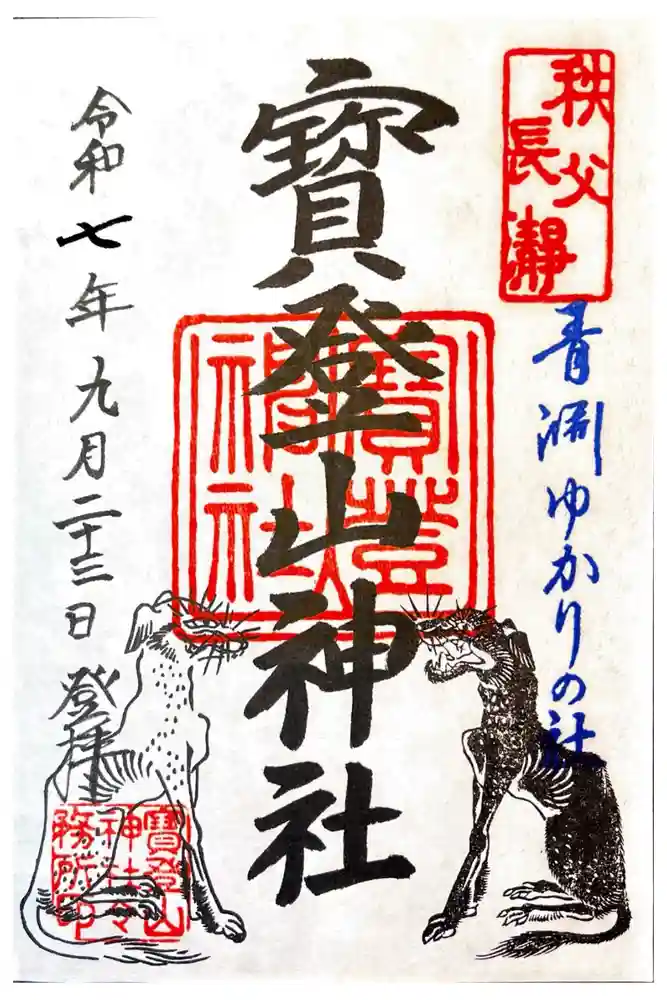 秩父
長瀞
青淵ゆかりの社
寳登山神社
寳登
山神社
令和七年九月二十三日 登拝
寳登山
神社々
務所印